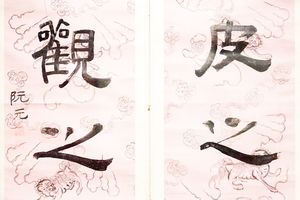 皮之
觀之
阮元